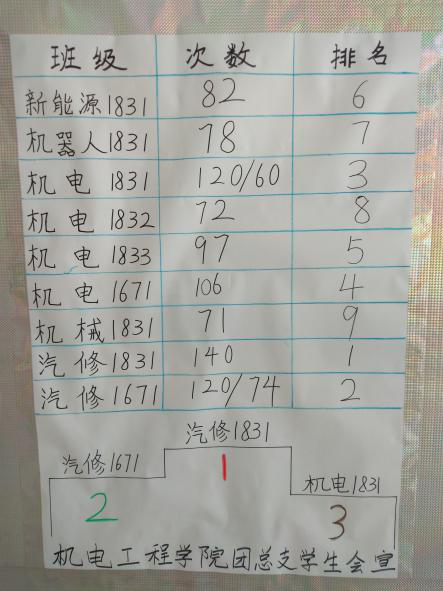 班级 次数 排名
新能源1831 82 6
机器人1831 78 7
机电1831 120/60 3
机电1832 72 8
机电1833 97 5
机电1671 106 4
机械1831 71 9
汽修1831 140 1
汽修1671 120/74 2
汽修1831
汽修1671 1 机电1831
2 3
机电工程学院团总支学生会宣